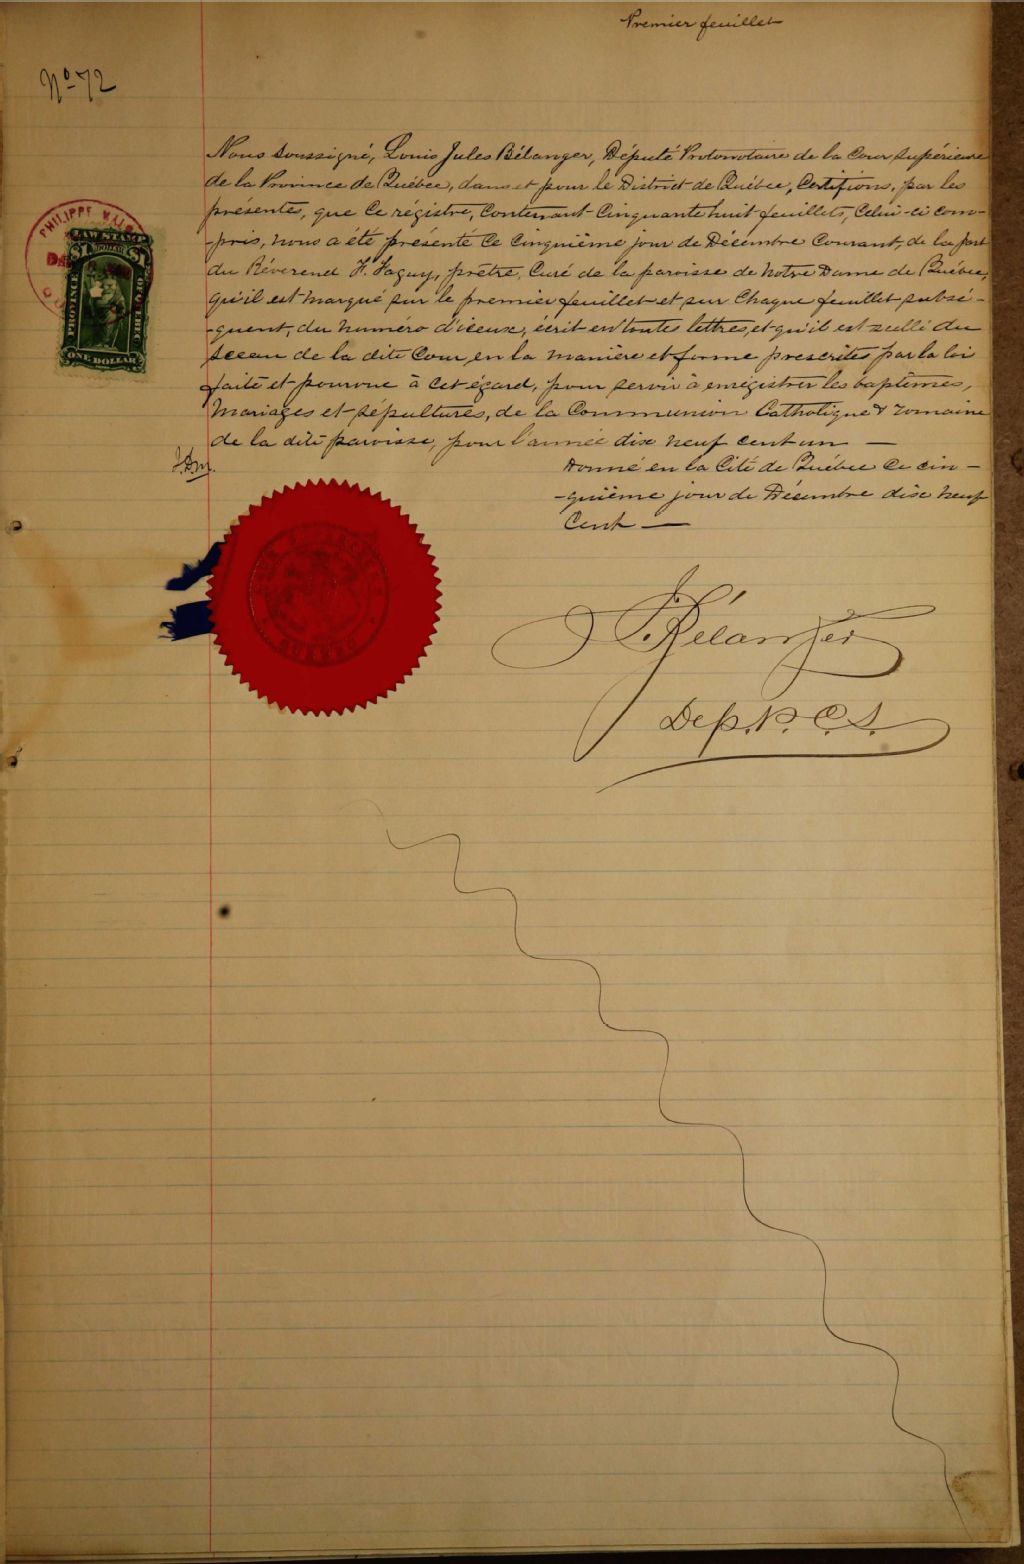 Premier feuillet
No 72
Nous soussigné, Louis Jules Bélanger, Député Protonotaire de la Cour Supérieure
de la Province de Québec, dans et pour le District de Québec, Certifions, par les
présentes, que ce régistre, contenant cinquante huit feuillets, celui-ci com-
-pris, nous a été présenté ce cinquième jour de Décembre courant, de la part
du Révérend F. Faguy, prêtre, Curé de la paroisse de Notre Dame de Québec,
qu'il est marqué sur le premier feuillet et sur chaque feuillet subsé-
-quent, du numéro d'iceux, écrit en toutes lettres, et qu'il est scellé du
sceau de la dite Cour en la manière et forme prescrites par la loi
faite et pourvue à cet égard, pour servir à enrégistrer les baptêmes,
mariages et sépultures, de la Communion Catholique & romaine
de la dite paroisse, pour l'année dix neuf cent un —
Donné en la Cité de Québec ce cin-
-quième jour de Décembre dix neuf
Cent —
PHILIPPE
LAW STAMP
$1 DOLLAR $1
PROVINCE OF QUEBEC
ONE DOLLAR
QUEBEC
J. Bélanger
Dep. P. C. S.